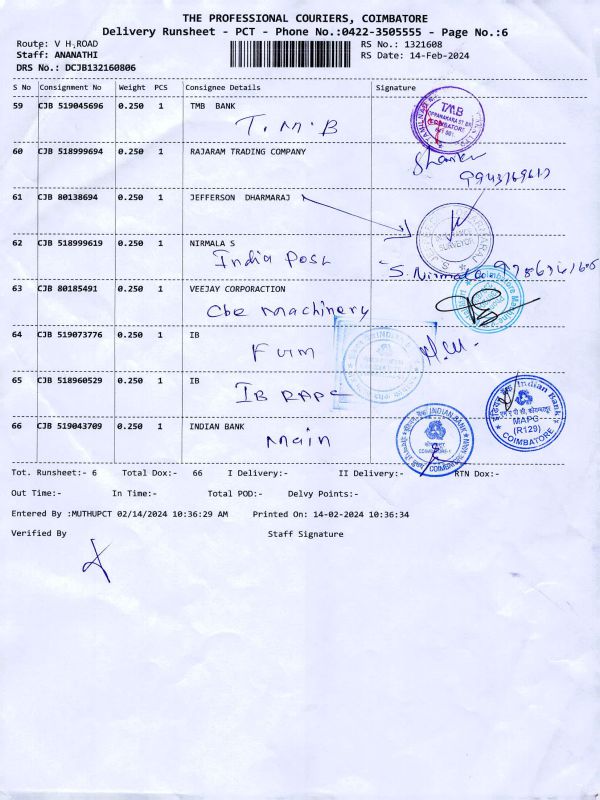 THE PROFESSIONAL COURIERS, COIMBATORE
Delivery Runsheet - PCT - Phone No.:0422-3505555 - Page No.:6
Route: V H.ROAD
Staff: ANANATHI
DRS No.: DCJB132160806
RS No.: 1321608
RS Date: 14-Feb-2024
S No Consignment No Weight PCS Consignee Details Signature
59 CJB 519045696 0.250 1 TMB BANK
T.M.B
TMB
COIMBATORE
60 CJB 518999694 0.250 1 RAJARAM TRADING COMPANY
61 CJB 80138694 0.250 1 JEFFERSON DHARMARAJ
SURVEYOR
62 CJB 518999619 0.250 1 NIRMALA S
India Post
S. Nirmala
63 CJB 80185491 0.250 1 VEEJAY CORPORACTION
Cbe Machinery
64 CJB 519073776 0.250 1 IB
Fum
65 CJB 518960529 0.250 1 IB
IB RAPC
Indian Bank
MAPG
(R129)
COIMBATORE
66 CJB 519043709 0.250 1 INDIAN BANK
Main
INDIAN BANK
Tot. Runsheet:- 6 Total Dox:- 66 I Delivery:- II Delivery:- RTN Dox:-
Out Time:- In Time:- Total POD:- Delvy Points:-
Entered By :MUTHUPCT 02/14/2024 10:36:29 AM Printed On: 14-02-2024 10:36:34
Verified By Staff Signature